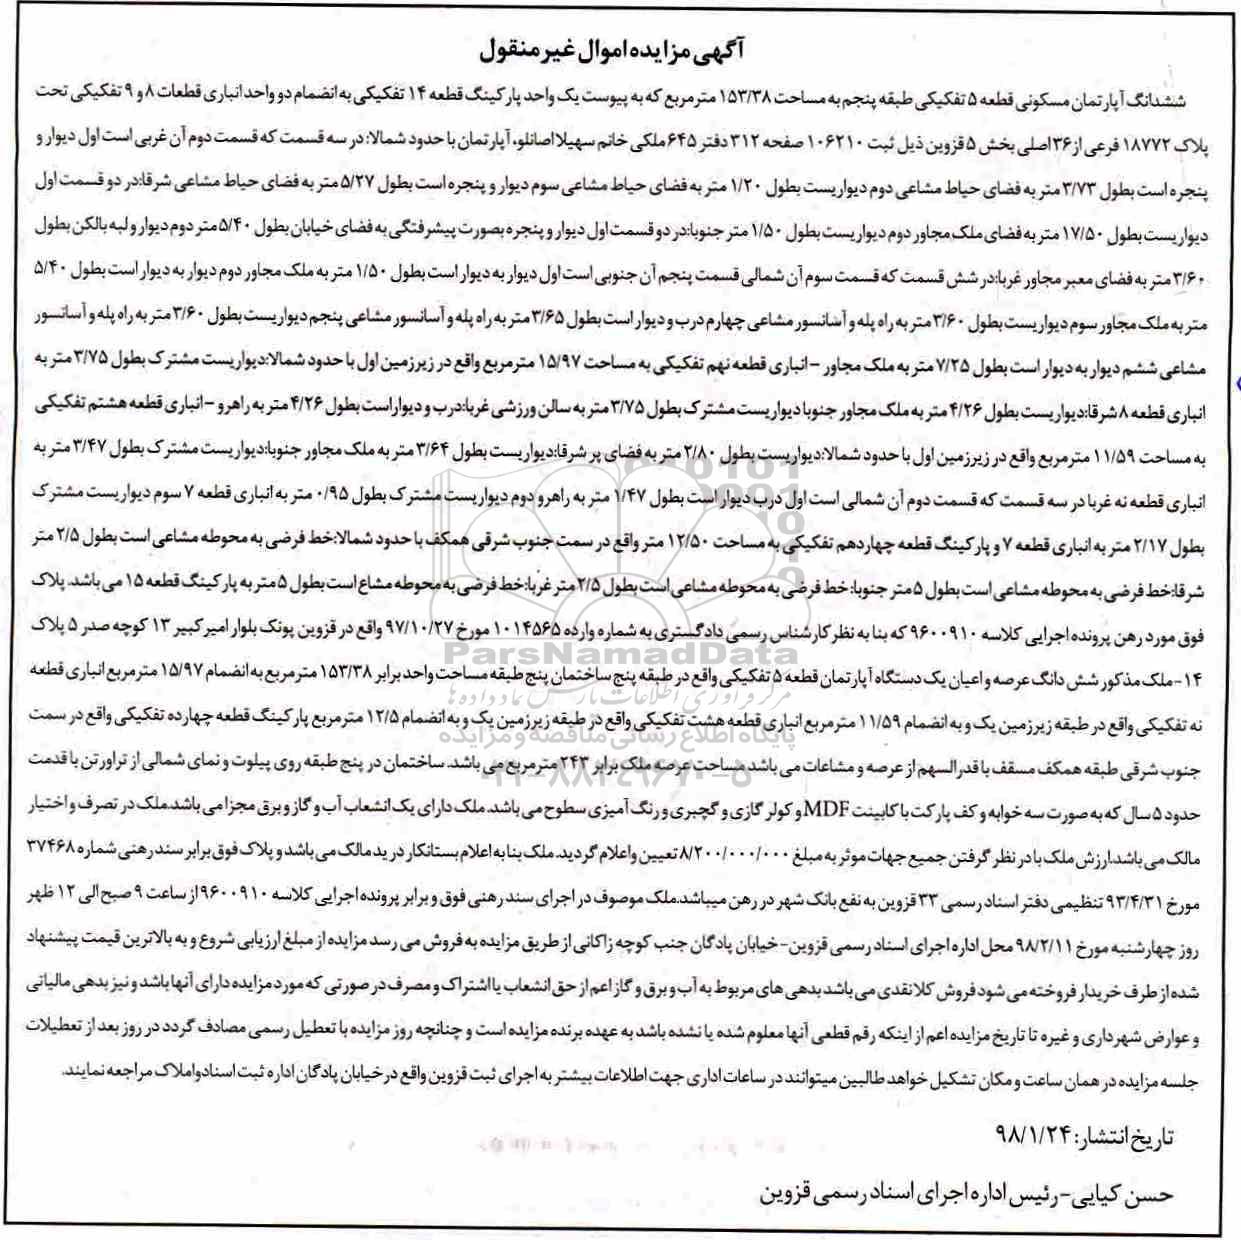 آگهی مزایده اموال غیرمنقول
ششدانگ آپارتمان مسکونی قطعه ۵ تفکیکی طبقه پنجم به مساحت ۱۵۳/۳۸ مترمربع که به پیوست یک واحد پارکینگ قطعه ۱۴ تفکیکی به انضمام دو واحد انباری قطعات ۸ و ۹ تفکیکی تحت
پلاک ۱۸۷۷۲ فرعی از ۳۶ اصلی بخش ۵ قزوین ذیل ثبت ۱۰۶۲۱۰ صفحه ۳۱۲ دفتر ۶۴۵ ملکی خانم سهیلا اصانلو، آپارتمان با حدود شمالا: در سه قسمت که قسمت دوم آن غربی است اول دیوار و
پنجره است بطول ۳/۷۳ متر به فضای حیاط مشاعی دوم دیواریست بطول ۱/۲۰ متر به فضای حیاط مشاعی سوم دیوار و پنجره است بطول ۵/۲۷ متر به فضای حیاط مشاعی شرقا: در دو قسمت اول
دیواریست بطول ۱۷/۵۰ متر به فضای ملک مجاور دوم دیواریست بطول ۱/۵۰ متر جنوبا: در دو قسمت اول دیوار و پنجره بصورت پیشرفتگی به فضای خیابان بطول ۵/۴۰ متر دوم دیوار و لبه بالکن بطول
۳/۶۰ متر به فضای معبر مجاور غربا: در شش قسمت که قسمت سوم آن شمالی قسمت پنجم آن جنوبی است اول دیوار به دیوار است بطول ۱/۵۰ متر به ملک مجاور دوم دیوار به دیوار است بطول ۵/۴۰
متر به ملک مجاور سوم دیواریست بطول ۳/۶۰ متر به راه پله و آسانسور مشاعی چهارم درب و دیوار است بطول ۳/۶۵ متر به راه پله و آسانسور مشاعی پنجم دیواریست بطول ۳/۶۰ متر به راه پله و آسانسور
مشاعی ششم دیوار به دیوار است بطول ۷/۲۵ متر به ملک مجاور – انباری قطعه نهم تفکیکی به مساحت ۱۵/۹۷ مترمربع واقع در زیرزمین اول با حدود شمالا: دیواریست مشترک بطول ۳/۷۵ متر به
انباری قطعه ۸ شرقا: دیواریست بطول ۴/۲۶ متر به ملک مجاور جنوبا دیواریست مشترک بطول ۳/۷۵ متر به سالن ورزشی غربا: درب و دیوار است بطول ۴/۲۶ متر به راهرو – انباری قطعه هشتم تفکیکی
به مساحت ۱۱/۵۹ مترمربع واقع در زیرزمین اول با حدود شمالا: دیواریست بطول ۲/۸۰ متر به فضای پر شرقا: دیواریست بطول ۳/۶۴ متر به ملک مجاور جنوبا: دیواریست مشترک بطول ۳/۴۷ متر به
انباری قطعه نه غربا در سه قسمت که قسمت دوم آن شمالی است اول درب دیوار است بطول ۱/۴۷ متر به راهرو دوم دیواریست مشترک بطول ۰/۹۵ متر به انباری قطعه ۷ سوم دیواریست مشترک
بطول ۲/۱۷ متر به انباری قطعه ۷ و پارکینگ قطعه چهاردهم تفکیکی به مساحت ۱۲/۵۰ متر واقع در سمت جنوب شرقی همکف با حدود شمالا: خط فرضی به محوطه مشاعی است بطول ۲/۵ متر
شرقا: خط فرضی به محوطه مشاعی است بطول ۵ متر جنوبا: خط فرضی به محوطه مشاعی است بطول ۲/۵ متر غربا: خط فرضی به محوطه مشاع است بطول ۵ متر به پارکینگ قطعه ۱۵ می باشد. پلاک
فوق مورد رهن پرونده اجرایی کلاسه ۹۶۰۰۹۱۰ که بنا به نظر کارشناس رسمی دادگستری به شماره وارده ۱۰۱۴۵۶۵ مورخ ۹۷/۱۰/۲۷ واقع در قزوین پونک بلوار امیرکبیر ۱۳ کوچه صدر ۵ پلاک
۱۴- ملک مذکور شش دانگ عرصه و اعیان یک دستگاه آپارتمان قطعه ۵ تفکیکی واقع در طبقه پنج ساختمان پنج طبقه مساحت واحد برابر ۱۵۳/۳۸ مترمربع به انضمام ۱۵/۹۷ مترمربع انباری قطعه
نه تفکیکی واقع در طبقه زیرزمین یک و به انضمام ۱۱/۵۹ مترمربع انباری قطعه هشت تفکیکی واقع در طبقه زیرزمین یک و به انضمام ۱۲/۵ مترمربع پارکینگ قطعه چهارده تفکیکی واقع در سمت
جنوب شرقی طبقه همکف مسقف با قدرالسهم از عرصه و مشاعات می باشد مساحت عرصه ملک برابر ۲۴۳ مترمربع می باشد. ساختمان در پنج طبقه روی پیلوت و نمای شمالی از تراورتن با قدمت
حدود ۵ سال که به صورت سه خوابه و کف پارکت با کابینت MDF و کولر گازی و گچبری و رنگ آمیزی سطوح می باشد. ملک دارای یک انشعاب آب و گاز و برق مجزا می باشد. ملک در تصرف و اختیار
مالک می باشد. ارزش ملک با در نظر گرفتن جمیع جهات موثر به مبلغ ۸/۲۰۰/۰۰۰/۰۰۰ تعیین و اعلام گردید. ملک بنا به اعلام بستانکار در ید مالک می باشد و پلاک فوق برابر سند رهنی شماره ۳۷۴۶۸
مورخ ۹۳/۴/۳۱ تنظیمی دفتر اسناد رسمی ۳۳ قزوین به نفع بانک شهر در رهن میباشد. ملک موصوف در اجرای سند رهنی فوق و برابر پرونده اجرایی کلاسه ۹۶۰۰۹۱۰ از ساعت ۹ صبح الی ۱۲ ظهر
روز چهارشنبه مورخ ۹۸/۲/۱۱ محل اداره اجرای اسناد رسمی قزوین- خیابان پادگان جنب کوچه زاکانی از طریق مزایده به فروش می رسد مزایده از مبلغ ارزیابی شروع و به بالاترین قیمت پیشنهاد
شده از طرف خریدار فروخته می شود فروش کلا نقدی می باشد بدهی های مربوط به آب و برق و گاز اعم از حق انشعاب یا اشتراک و مصرف در صورتی که مورد مزایده دارای آنها باشد و نیز بدهی مالیاتی
و عوارض شهرداری و غیره تا تاریخ مزایده اعم از اینکه رقم قطعی آنها معلوم شده یا نشده باشد به عهده برنده مزایده است و چنانچه روز مزایده با تعطیل رسمی مصادف گردد در روز بعد از تعطیلات
جلسه مزایده در همان ساعت و مکان تشکیل خواهد طالبین میتوانند در ساعات اداری جهت اطلاعات بیشتر به اجرای ثبت قزوین واقع در خیابان پادگان اداره ثبت اسناد و املاک مراجعه نمایند.
تاریخ انتشار: ۹۸/۱/۲۴
حسن کیایی- رئیس اداره اجرای اسناد رسمی قزوین
ParsNamadData
مرکز فرآوری اطلاعات پارس نماد داده ها
پایگاه اطلاع رسانی مناقصه و مزایده